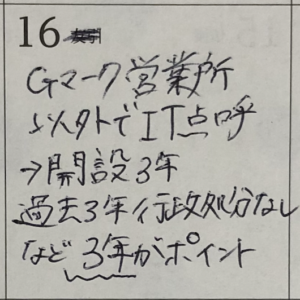 16
Gマーク営業所
以外でIT点呼
→開設3年
過去3年行政処分なし
など 3年がポイント